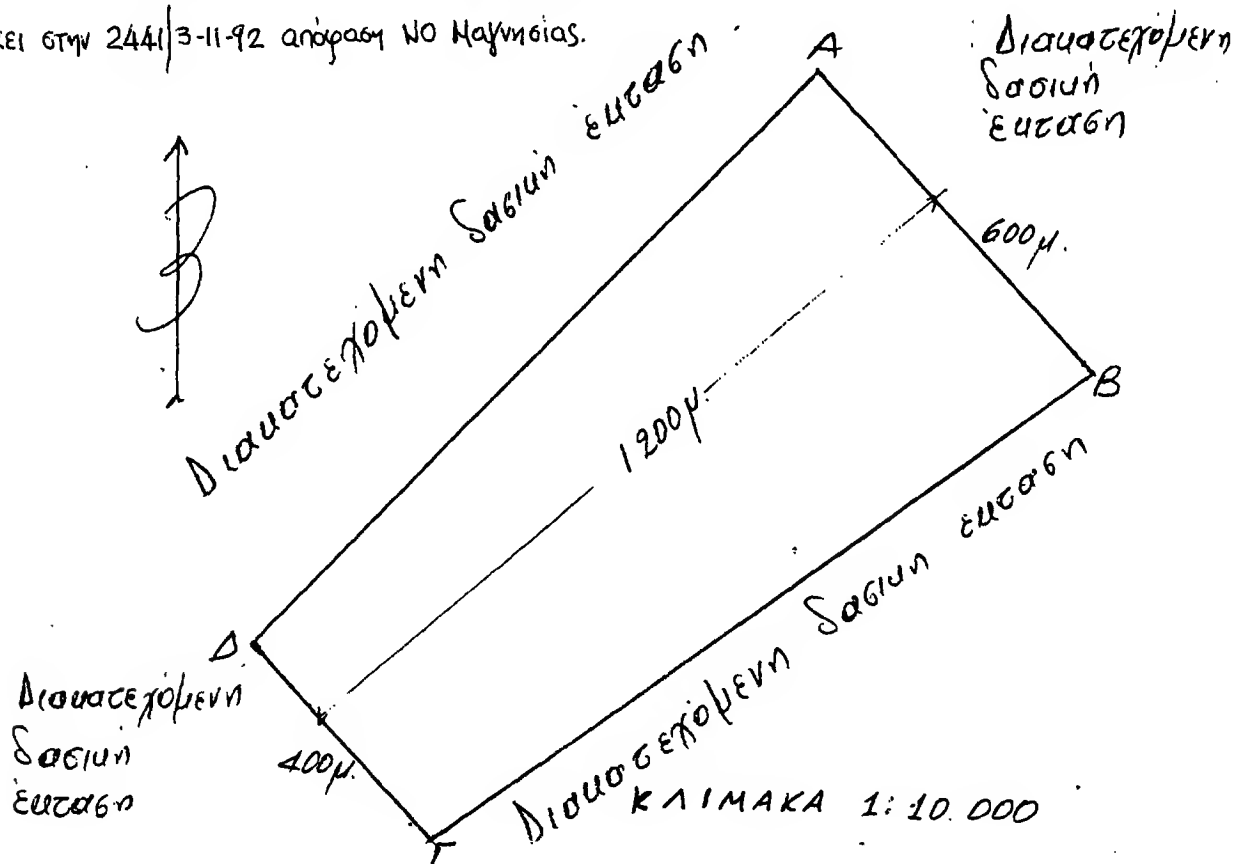 κει στην 2441/3-11-92 απόφαση ΝΟ Μαγνησίας.
Α
Διακατεχόμενη
δασική
έκταση
Διακατεχόμενη δασική έκταση
Β
600μ.
Β
1200μ.
Διακατεχόμενη δασική έκταση
Δ
Διακατεχόμενη
δασική
έκταση
400μ.
Γ
ΚΛΙΜΑΚΑ 1:10.000